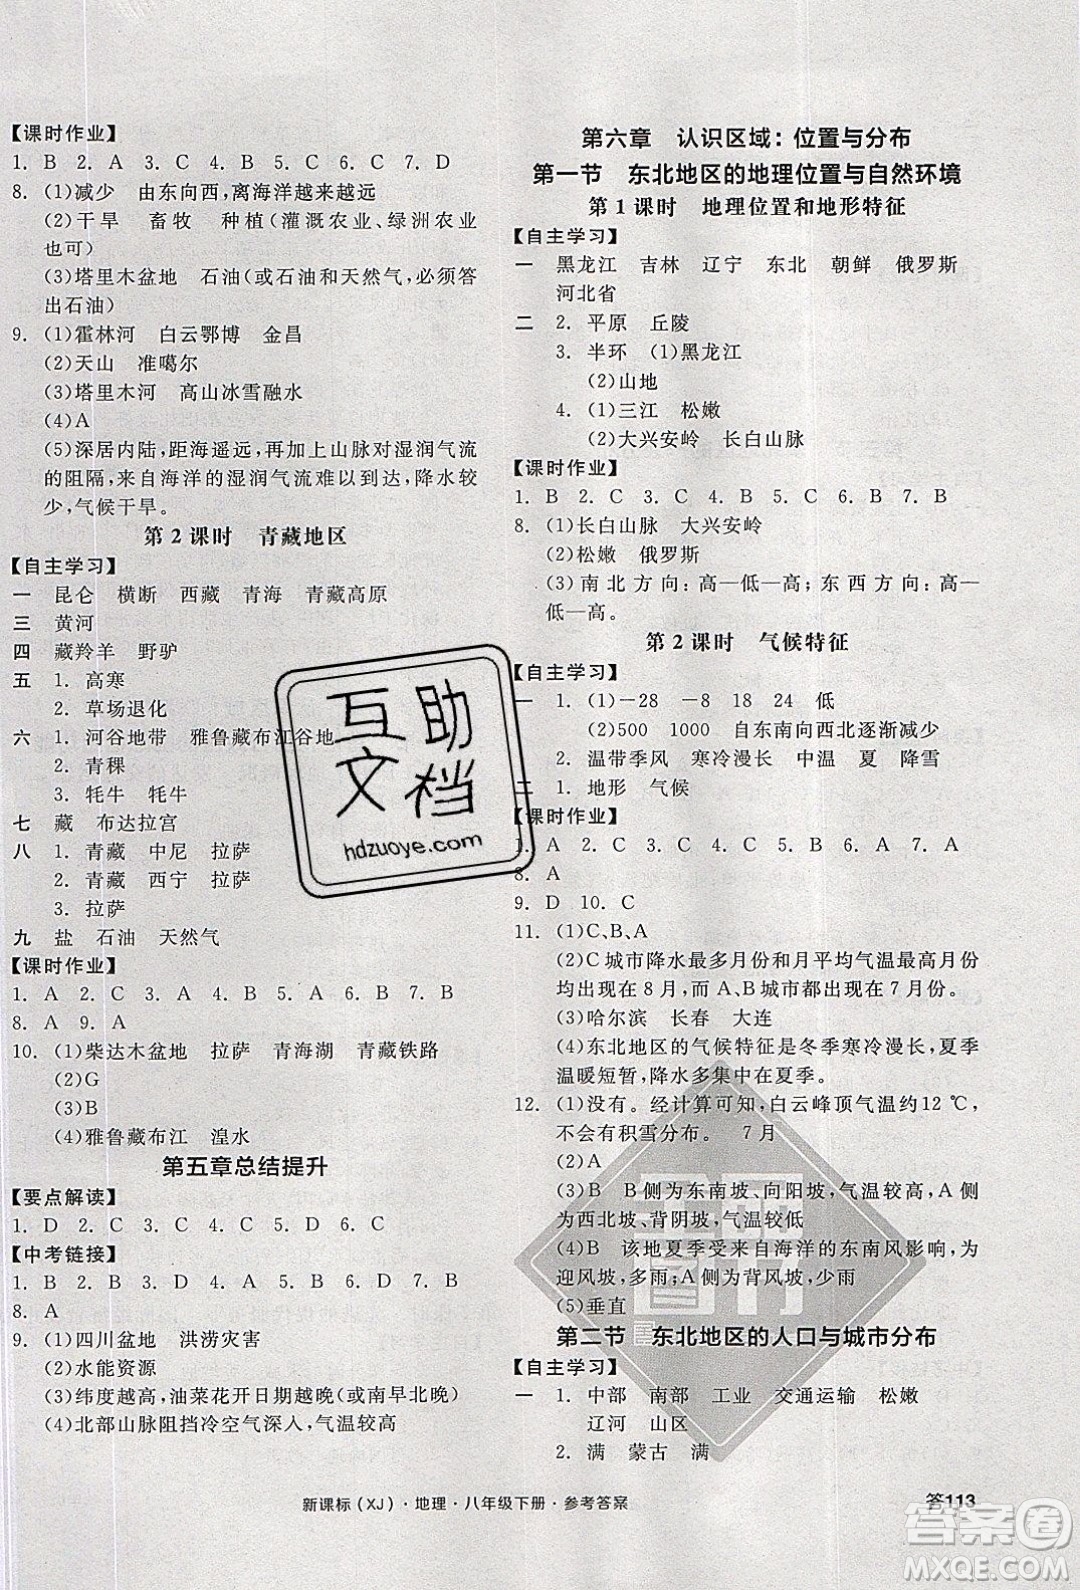 【课时作业】
1. B 2. A 3. C 4. C 5. C 6. C 7. D
8. (1)减少 由东向西,离海洋越来越远
(2)干旱 畜牧 种植(灌溉农业、绿洲农业
也可)
(3)塔里木盆地 石油(或石油和天然气,必须答
出石油)
9. (1)霍林河 白云鄂博 金昌
(2)天山 准噶尔
(3)塔里木河 高山冰雪融水
(4)A
(5)深居内陆,距海遥远,再加上山脉对湿润气流
的阻隔,来自海洋的湿润气流难以到达,降水较
少,气候干旱。
第2课时 青藏地区
【自主学习】
一 昆仑 横断 西藏 青海 青藏高原
三 黄河
四 藏羚羊 野驴
五 1. 高寒
2. 草场退化
六 1. 河谷地带 雅鲁藏布江谷地
2. 青稞
3. 牦牛 牦牛
七 藏 布达拉宫
八 1. 青藏 中尼 拉萨
2. 青藏 西宁 拉萨
3. 拉萨
九 盐 石油 天然气
【课时作业】
1. A 2. C 3. C 4. A 5. B 6. C 7. B
8. A 9. A
10. (1)柴达木盆地 拉萨 青海湖 青藏铁路
(2)G
(3)B
(4)雅鲁藏布江 湟水
第五章总结提升
【要点解读】
1. D 2. C 3. C 4. C 5. D 6. C
【中考链接】
1. B 2. B 3. D 4. A 5. D 6. A 7. B
8. A
9. (1)四川盆地 洪涝灾害
(2)水能资源
(3)纬度越高,油菜花开日期越晚(或南早北晚)
(4)北部山脉阻挡冷空气深入,气温较高
第六章 认识区域:位置与分布
第一节 东北地区的地理位置与自然环境
第1课时 地理位置和地形特征
【自主学习】
一 黑龙江 吉林 辽宁 东北 朝鲜 俄罗斯
河北省
二 2. 平原 丘陵
3. 半环 (1)黑龙江
(2)山地
4. (1)三江 松嫩
(2)大兴安岭 长白山脉
【课时作业】
1. B 2. B 3. C 4. C 5. C 6. B 7. B
8. (1)长白山脉 大兴安岭
(2)松嫩 俄罗斯
(3)南北方向:高—低—高;东西方向:高—
低—高。
第2课时 气候特征
【自主学习】
一 1. (1)−28 −8 18 24 低
(2)500 1000 自东南向西北逐渐减少
2. 温带季风 寒冷漫长 中温 夏 降雪
二 1. 地形 气候
【课时作业】
1. A 2. C 3. C 4. B 5. C 6. A 7. A
8. A
9. D 10. C
11. (1)C、B、A
(2)C城市降水最多月份和月平均气温最高月份
均出现在8月,而A、B城市都出现在7月份。
(3)哈尔滨 长春 大连
(4)东北地区的气候特征是冬季寒冷漫长,夏季
温暖短暂,降水多集中在夏季。
12. (1)没有。经计算可知,白云峰顶气温约12 ℃,
不会有积雪分布。 7月
(2)A
(3)B B侧为东南坡、向阳坡,气温较高,A侧
为西北坡、背阴坡,气温较低
(4)B 该地夏季受来自海洋的东南风影响,为
迎风坡,多雨;A侧为背风坡,少雨
(5)垂直
第二节 东北地区的人口与城市分布
【自主学习】
一 1. 中部 南部 工业 交通运输 松嫩
辽河 山区
2. 满 蒙古 满
新课标(XJ)·地理·八年级下册·参考答案
答113
互助文档
hdzuoye.com
答案圈
MXQE.COM